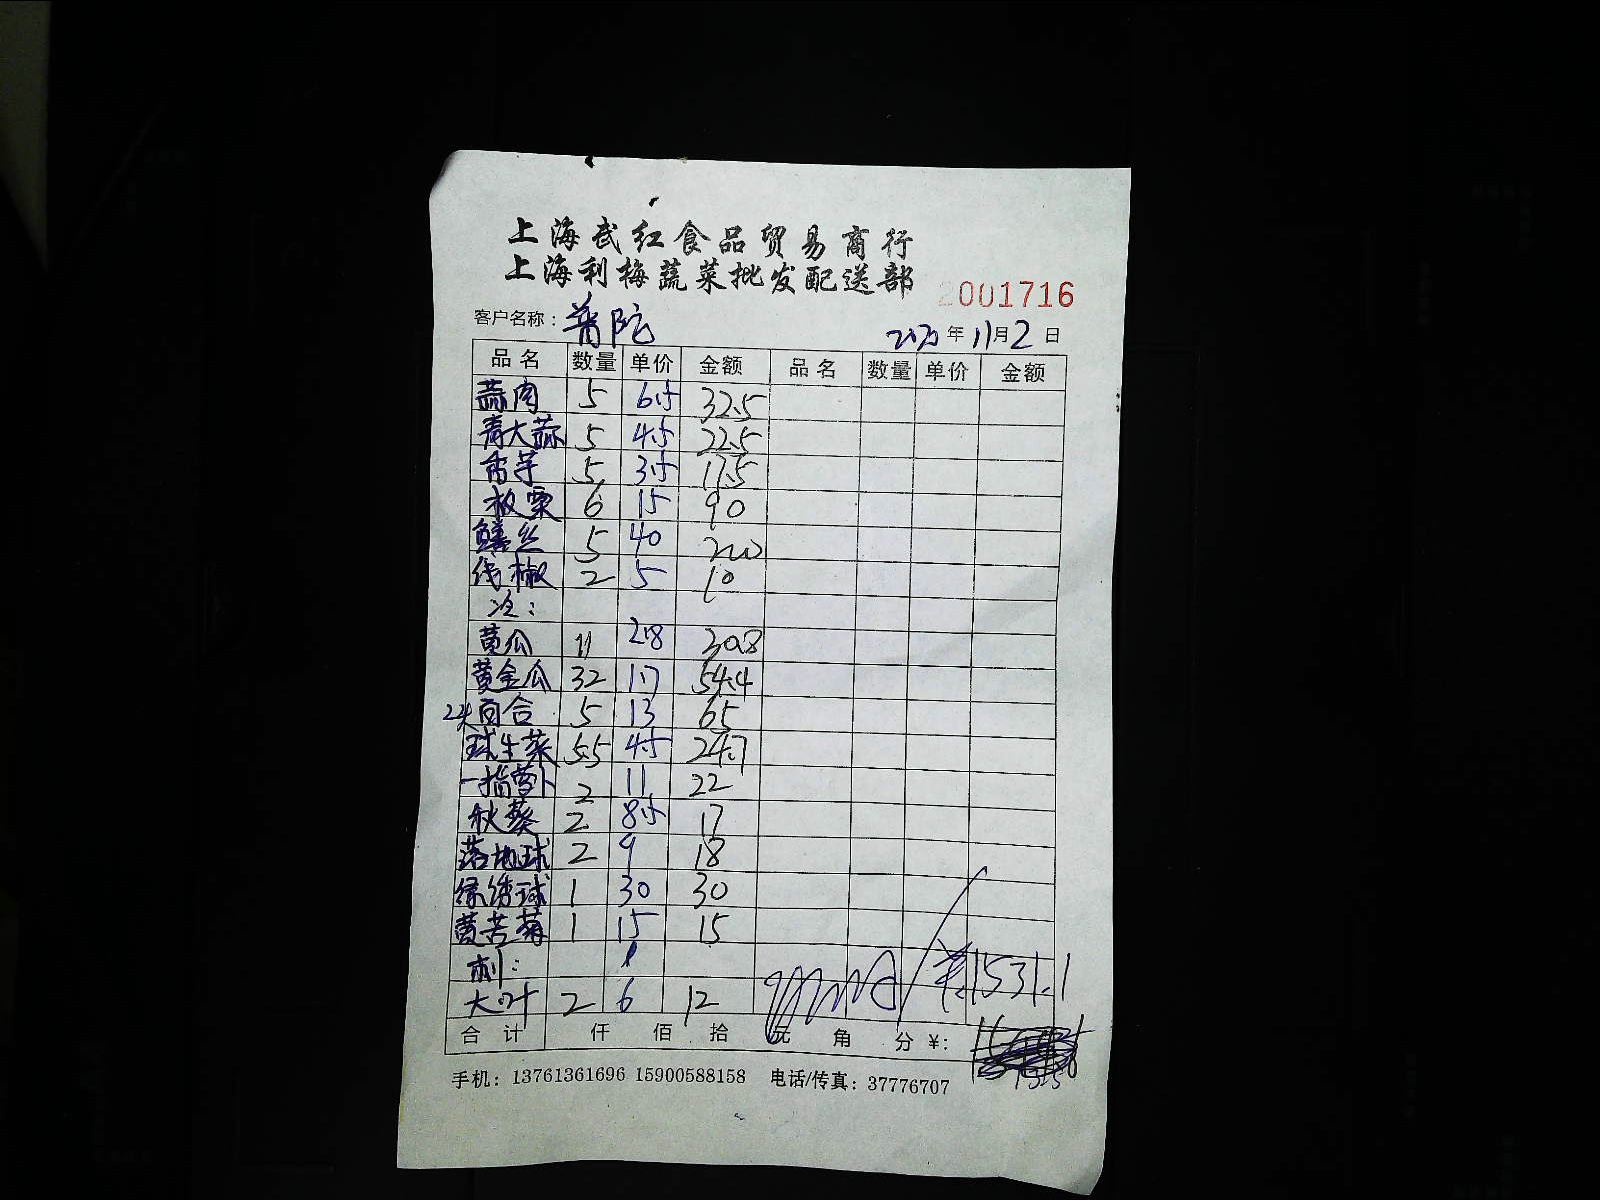 上海武红食品贸易商行
上海利梅蔬菜批发配送部
2001716
客户名称：普陀
2020年11月2日
品名 数量 单价 金额 品名 数量 单价 金额
蒜肉 5 6.5 32.5
青大蒜 5 4.5 22.5
香芋 5 3.5 17.5
板栗 6 15 90
鳝丝 5 40 200
线椒 2 5 10
冷：
黄瓜 11 2.8 30.8
黄金瓜 32 1.7 54.4
百合 5 13 65
球生菜 5.5 4.5 24.7
一指萝卜 2 11 22
秋葵 2 8.5 17
落地球 2 9 18
绿绣球 1 30 30
黄苦菊 1 15 15
刺：
大叶 2 6 12
1531.1
合计 仟 佰 拾 元 角 分 ¥:
手机：13761361696 15900588158 电话/传真：37776707